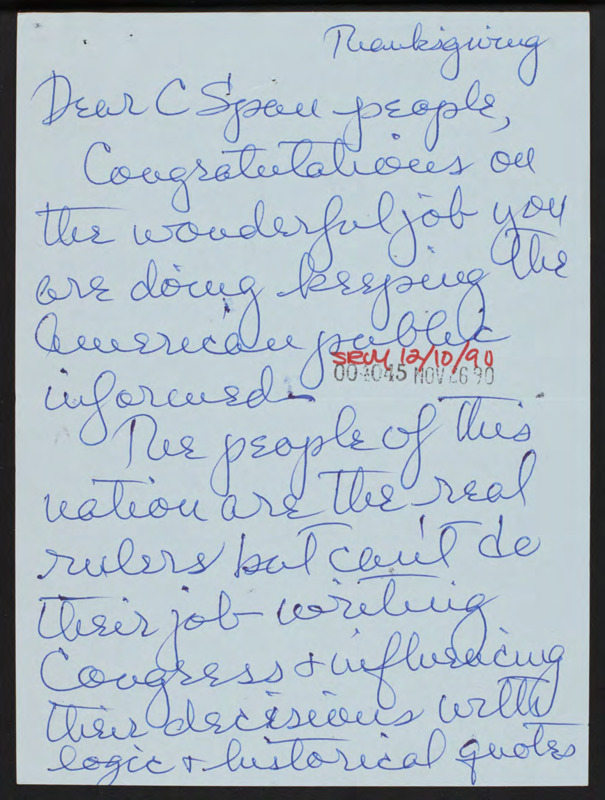 Thanksgiving
Dear C Span people,
Congratulations on
the wonderful job you
are doing keeping the
American public
SRVM 12/10/90
004045 NOV 26 90
informed—
The people of this
nation are the real
rulers but can't do
their job writing
Congress & influencing
their decisions with
logic & historical quotes